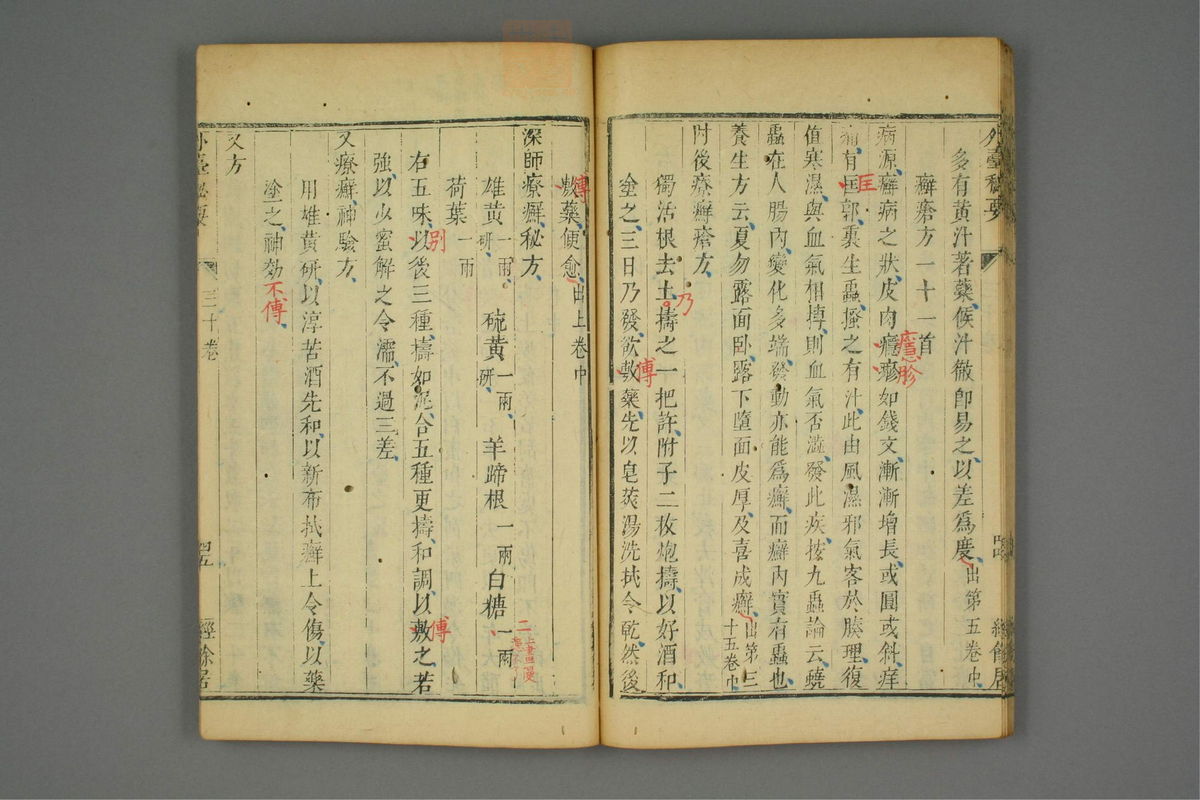 外臺秘要
多有黃汁著藥候汁徹卽易之以差爲度出第五卷中
癬瘡方一十一首
病源癬病之狀皮肉癮疹如錢文漸漸增長或圓或斜痒
癮胗
痛有匡郭裏生蟲搔之有汁此由風濕邪氣客於腠理復
匡
值寒濕與血氣相摶則血氣否澁發此疾按九蟲論云蟯
蟲在人腸內變化多端發動亦能爲癬而癬內實有蟲也
養生方云夏勿露面臥露下墮面皮厚及喜成癬出第三十五卷中
肘後療癬瘡方
獨活根去土擣之一把許附子二枚炮擣以好酒和
乃
塗之三日乃發欲敷藥先以皂莢湯洗拭令乾然後
傅
敷藥便愈出上卷中
傅
深師療癬秘方
雄黃一兩研 硫黃一兩研 羊蹄根一兩 白糖一兩
二
荷葉一兩
右五味以後三種擣如泥合五種更擣和調以敷之若
別
傅
強以少蜜解之令濡不過三差
又療癬神驗方
用雄黃研以淳苦酒先和以新布拭癬上令傷以藥
塗之神効
不傳
又方
外臺秘要 三十卷 四五 經餘居